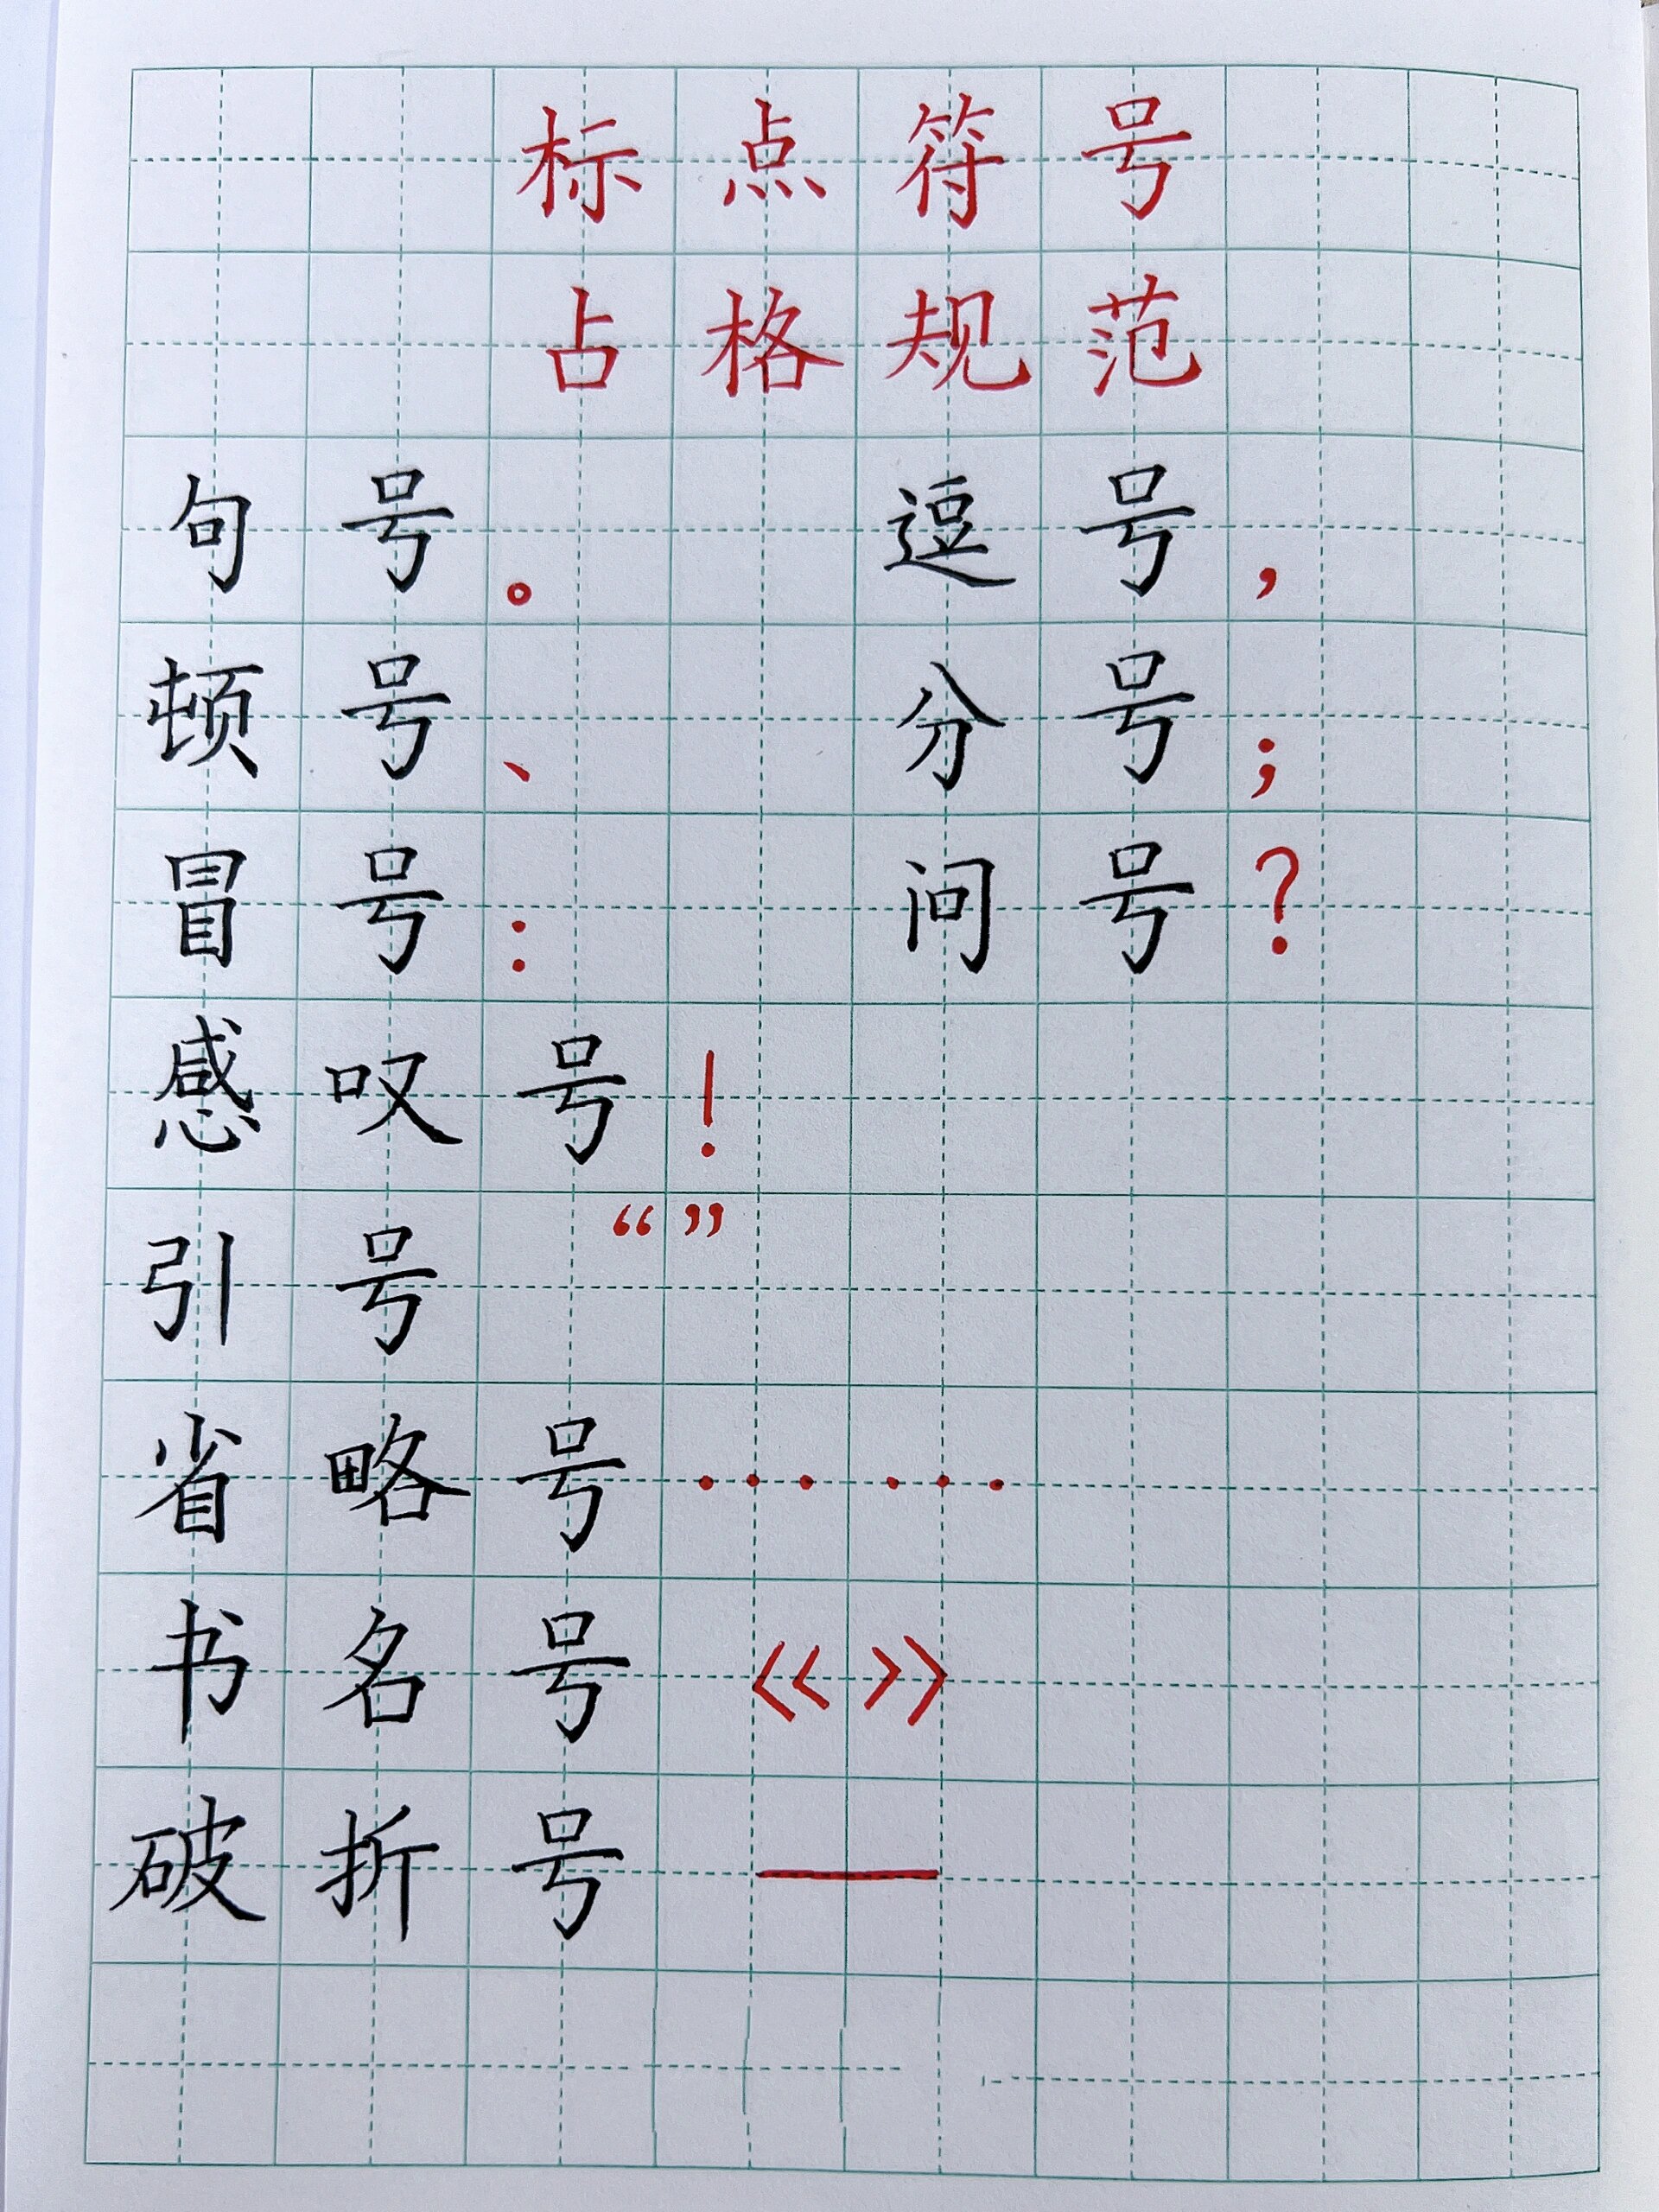 标点符号
占格规范
句号。 逗号，
顿号、 分号；
冒号： 问号？
感叹号！
引号“”
省略号……
书名号《》
破折号——